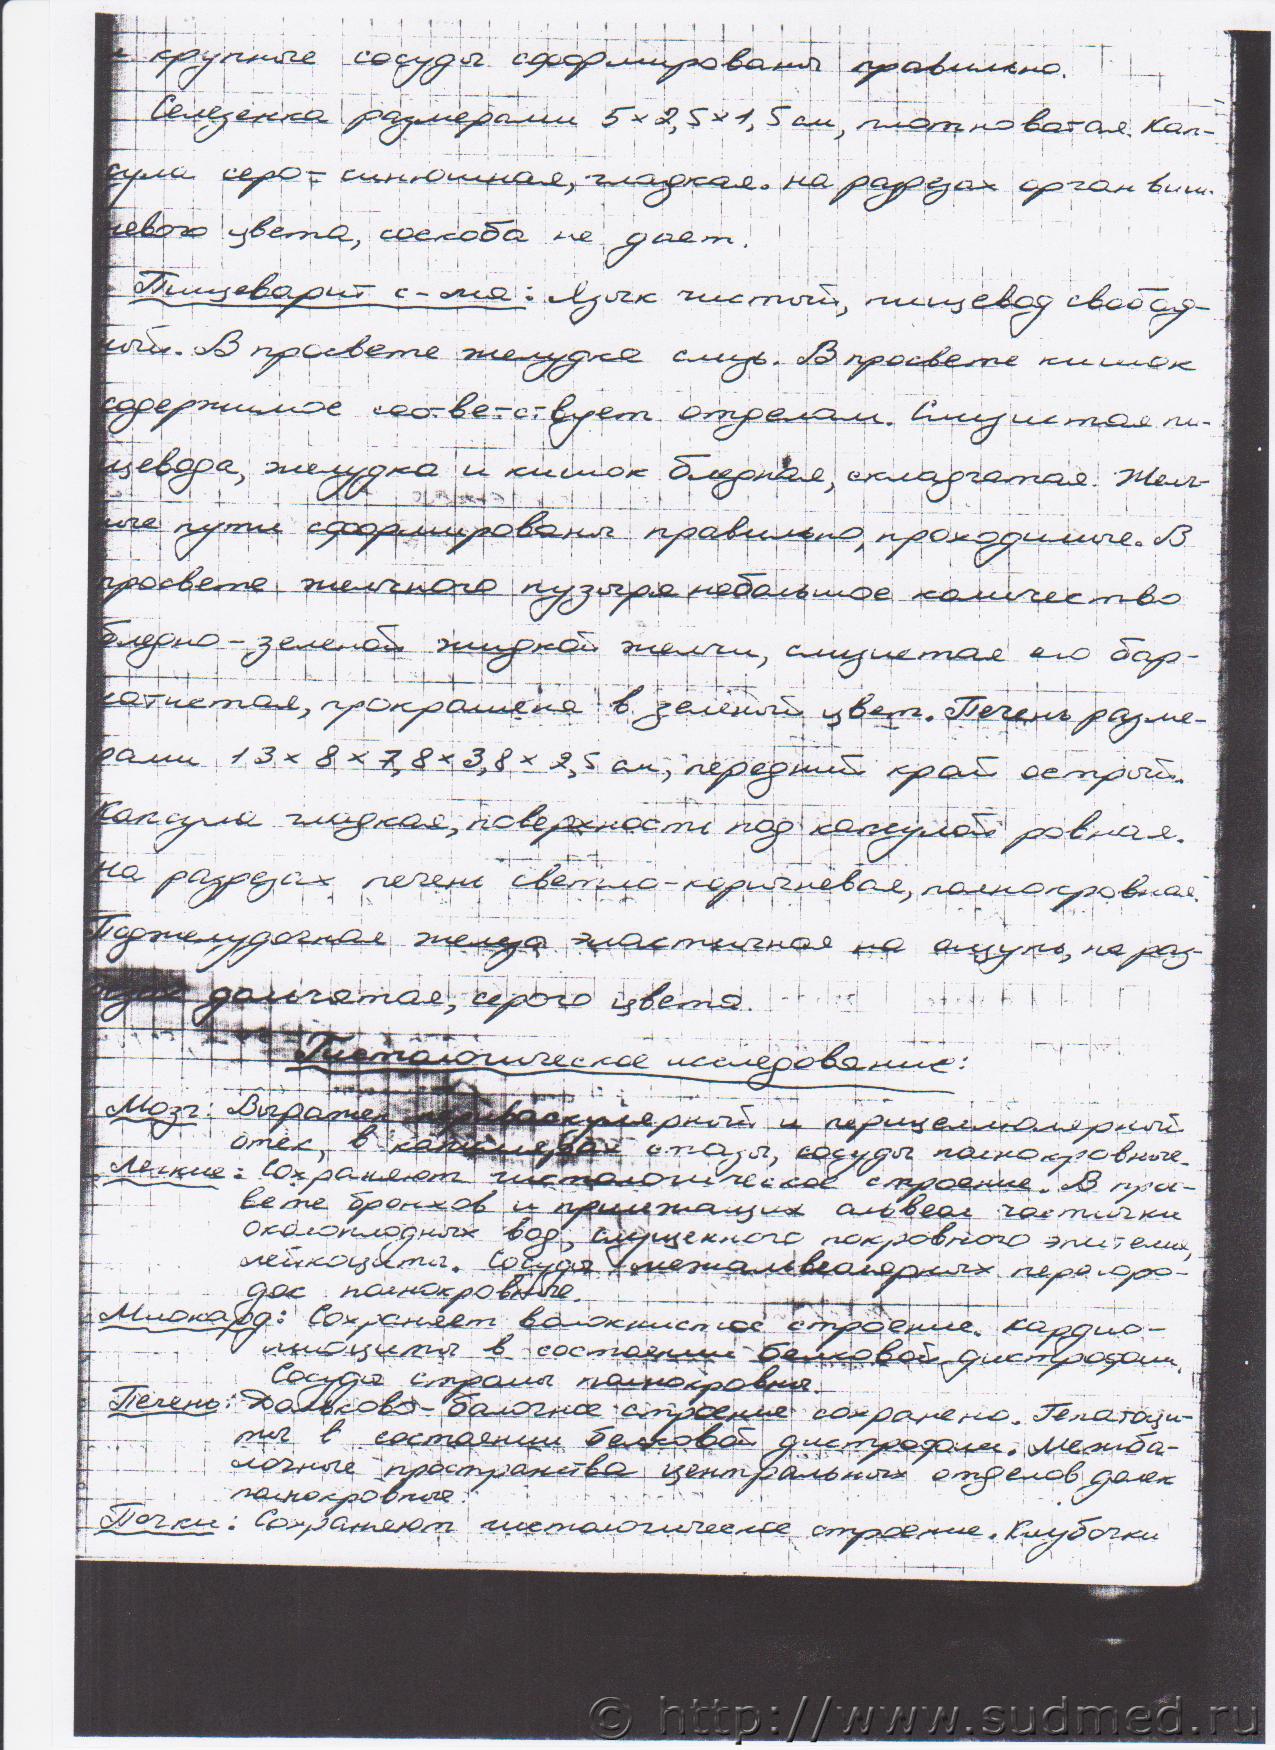 и крупные сосуды сформированы правильно.
Селезенка размерами 5×2,5×1,5 см, плотноватая. Кап-
сула серо-синюшная, гладкая. На разрезах орган виш-
невого цвета, соскоба не дает.
Пищеварит с-ма: Язык чистый, пищевод свобод-
ный. В просвете желудка слизь. В просвете кишок
содержимое соответствует отделам. Слизистая пи-
щевода, желудка и кишок бледная, складчатая. Желч-
ные пути сформированы правильно, проходимые. В
просвете желчного пузыря небольшое количество
бледно-зеленой жидкой желчи, слизистая его бар-
хатистая, прокрашена в зеленый цвет. Печень разме-
рами 13×8×7,8×3,8×2,5 см, передний край острый.
Капсула гладкая, поверхность под капсулой ровная.
На разрезах печень светло-коричневая, полнокровная.
Поджелудочная железа эластичная на ощупь, на раз-
резе дольчатая, серого цвета.
Гистологическое исследование:
Мозг: Выражен периваскулярный и перицеллюлярный
отек, в капиллярах стазы, сосуды полнокровные.
Легкие: Сохраняют гистологическое строение. В прос-
вете бронхов и прилежащих альвеол частички
околоплодных вод, слущенного покровного эпителия,
лейкоциты. Сосуды межальвеолярных перегоро-
док полнокровные.
Миокард: Сохраняет волокнистое строение. Кардио-
миоциты в состоянии белковой дистрофии.
Сосуды стромы полнокровны.
Печень: Дольково-балочное строение сохранено. Гепатоци-
ты в состоянии белковой дистрофии. Межба-
лочные пространства центральных отделов долек
полнокровные.
Почки: Сохраняют гистологическое строение. Клубочки
© http://www.sudmed.ru